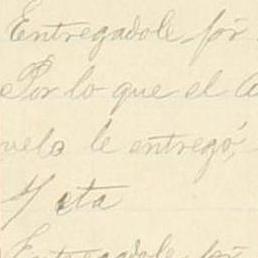 Entregadole pór
Por lo que el A
velo le entregó,
Yeta
Entregadole pór